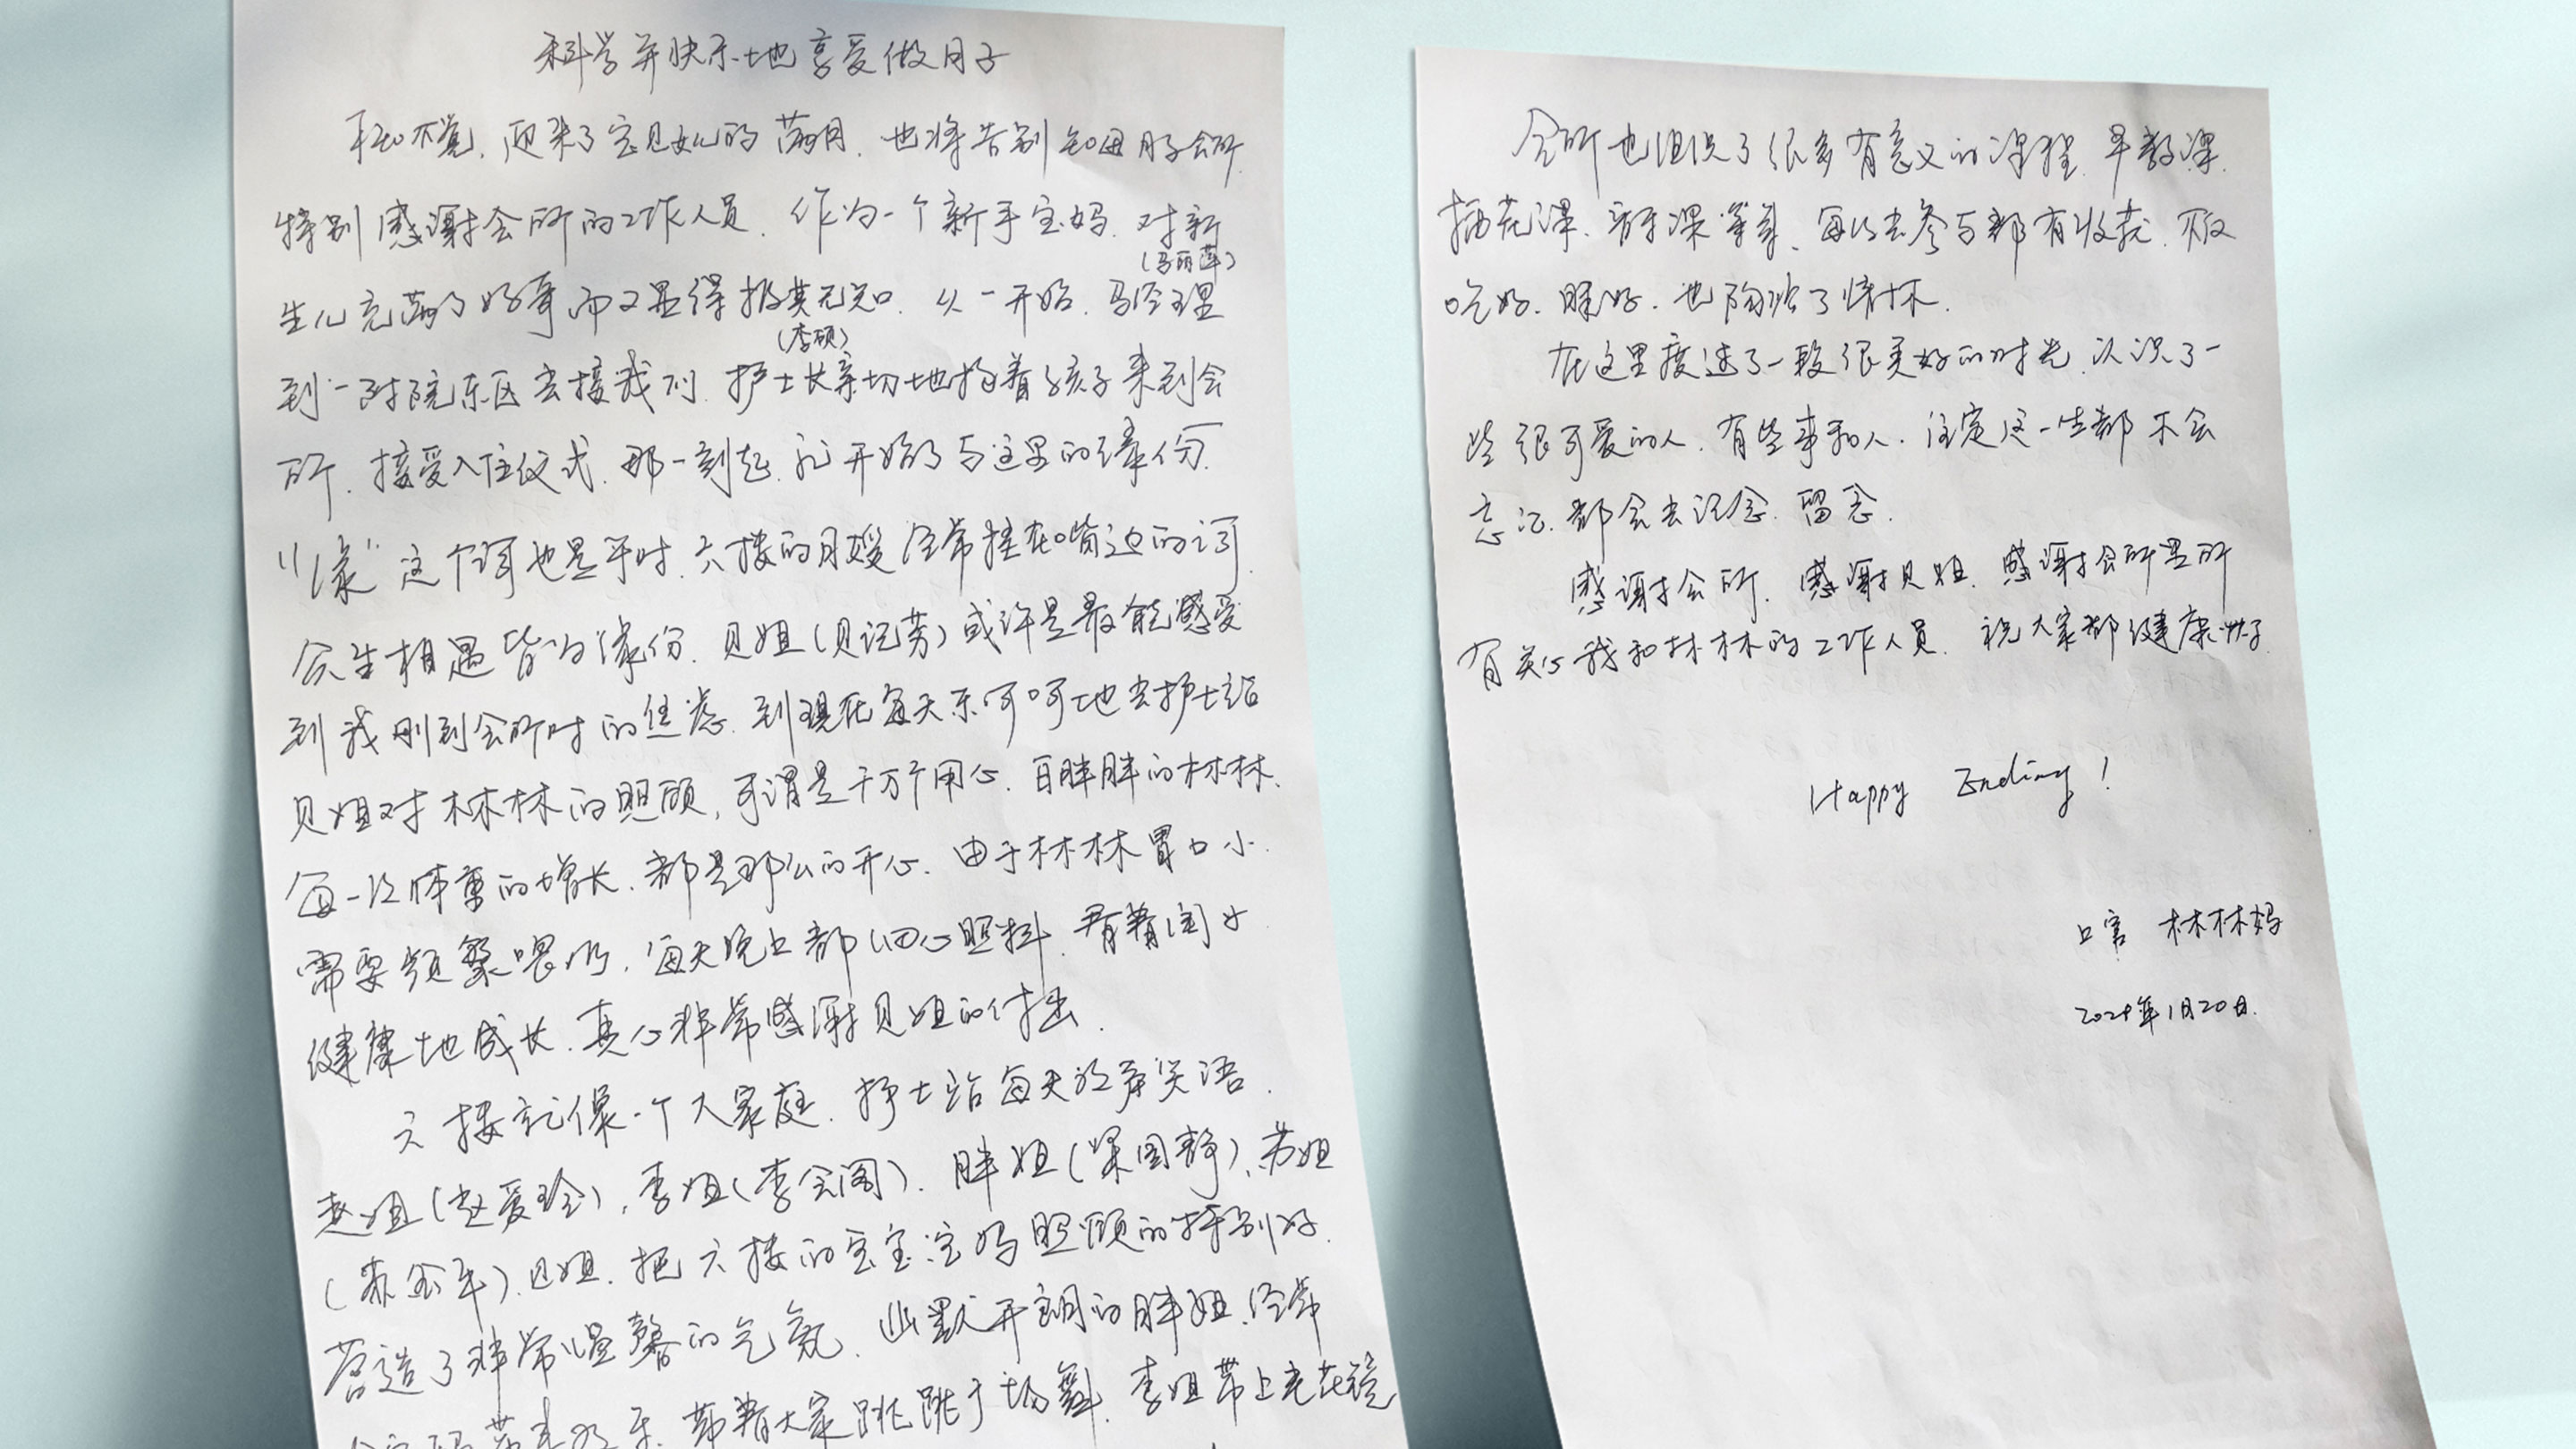 科学并快乐地享受做月子
不知不觉，迎来了宝贝女儿的满月，也将告别知母月子会所，
特别感谢会所的工作人员，作为一个新手宝妈，对新
（马丽莲）
生儿充满了好奇而又显得极其无知。从一开始，马经理
（李硕）
到一附院东区去接我们，护士长亲切地抱着孩子来到会
所，接受入住仪式，那一刻起，就开始了与这里的缘份。
“缘”这个词也是平时，六楼的月嫂经常挂在嘴边的词，
今生相遇皆为缘份，贝姐（贝记芳）或许是最能感受
到我刚到会所时的焦虑，到现在每天乐呵呵地去护士站
贝姐对林林的照顾，可谓是千万个用心，白胖胖的林林、
每一次体重的增长，都是那么的开心。由于林林胃口小，
需要频繁喂奶，每天晚上都细心照料，看着闺女
健康地成长，真心非常感谢贝姐的付出。
六楼就像一个大家庭，护士站每天欢声笑语，
赵姐（赵爱玲），李姐（李会阁），胖姐（梁国静），苏姐
（苏金平），贝姐，把六楼的宝宝宝妈照顾的特别好，
营造了非常温馨的气氛，幽默开朗的胖姐，经常
带来欢乐，带着大家跳跳广场舞，李姐带上老花镜
会所也组织了很多有意义的课程，早教课，
插花课、音乐课等等，每次去参与都有收获，不仅
吃好、睡好，也陶冶了情怀。
在这里度过了一段很美好的时光，认识了一
些很可爱的人，有些事和人，注定这一生都不会
忘记，都会去记念，留念。
感谢会所，感谢贝姐，感谢会所里所
有关心我和林林的工作人员，祝大家都健康快乐
Happy Ending！
林林妈
2024年1月20日.